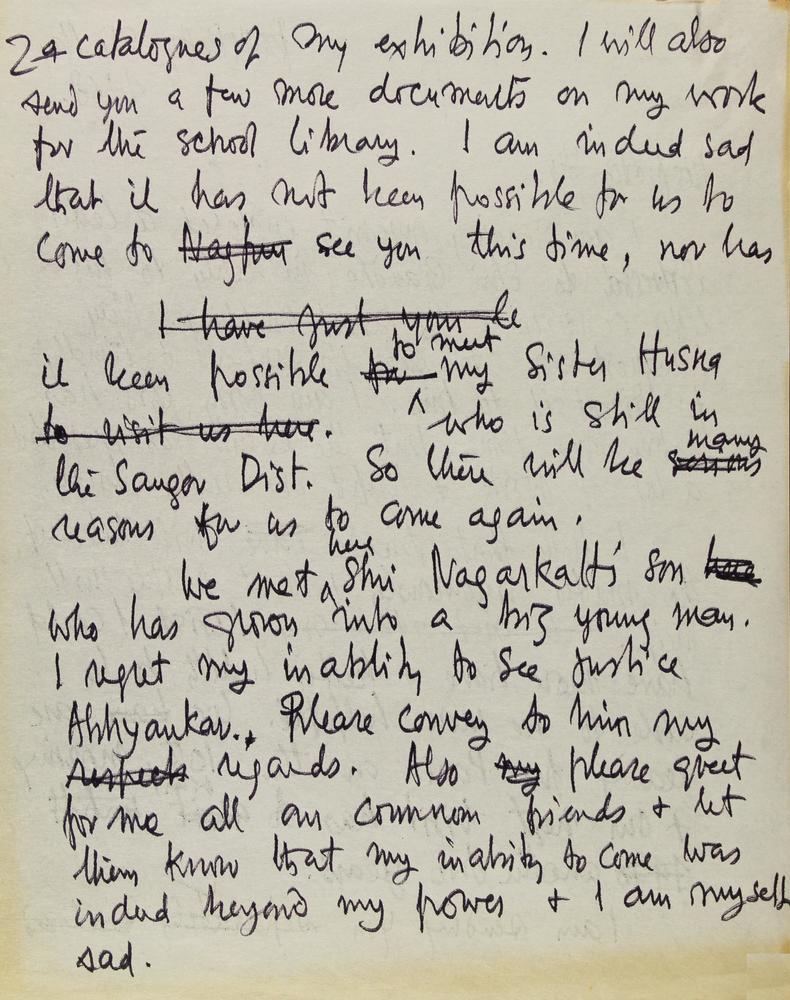 24 catalogues of my exhibition. I will also
send you a few more documents on my work
for the school library. I am indeed sad
that it has not been possible for us to
come to Nagpur see you this time, nor has
I have just your le
to meet
it been possible for my Sister Husna
to visit us here. ^ who is still in
many
the Saugor Dist. So there will be
reasons for us to come again.
here
We met ^ Shri Nagarkatti's son here
who has grown into a big young man.
I regret my inability to see Justice
Abhyankar. Please convey to him my
respects regards. Also my please greet
for me all our common friends + let
them know that my inability to come was
indeed beyond my power + I am myself
sad.